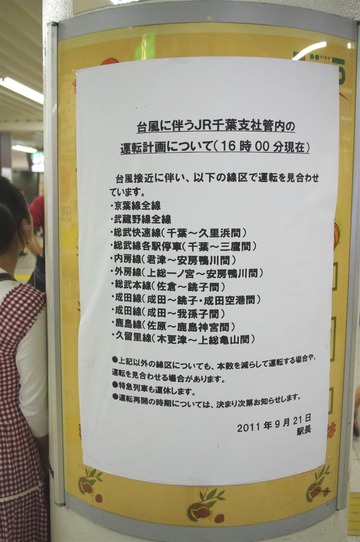 台風に伴うJR千葉支社管内の
運転計画について(16時00分現在)
台風接近に伴い、以下の線区で運転を見合わせ
ています。
・京葉線全線
・武蔵野線全線
・総武快速線(千葉～久里浜間)
・総武線各駅停車(千葉～三鷹間)
・内房線(君津～安房鴨川間)
・外房線(上総一ノ宮～安房鴨川間)
・総武本線(佐倉～銚子間)
・成田線(成田～銚子・成田空港間)
・成田線(成田～我孫子間)
・鹿島線(佐原～鹿島神宮間)
・久留里線(木更津～上総亀山間)
●上記以外の線区についても、本数を減らして運転する場合や、
運転を見合わせる場合があります。
●特急列車も運休します。
●運転再開の時期については、決まり次第お知らせします。
2011年9月21日
駅長